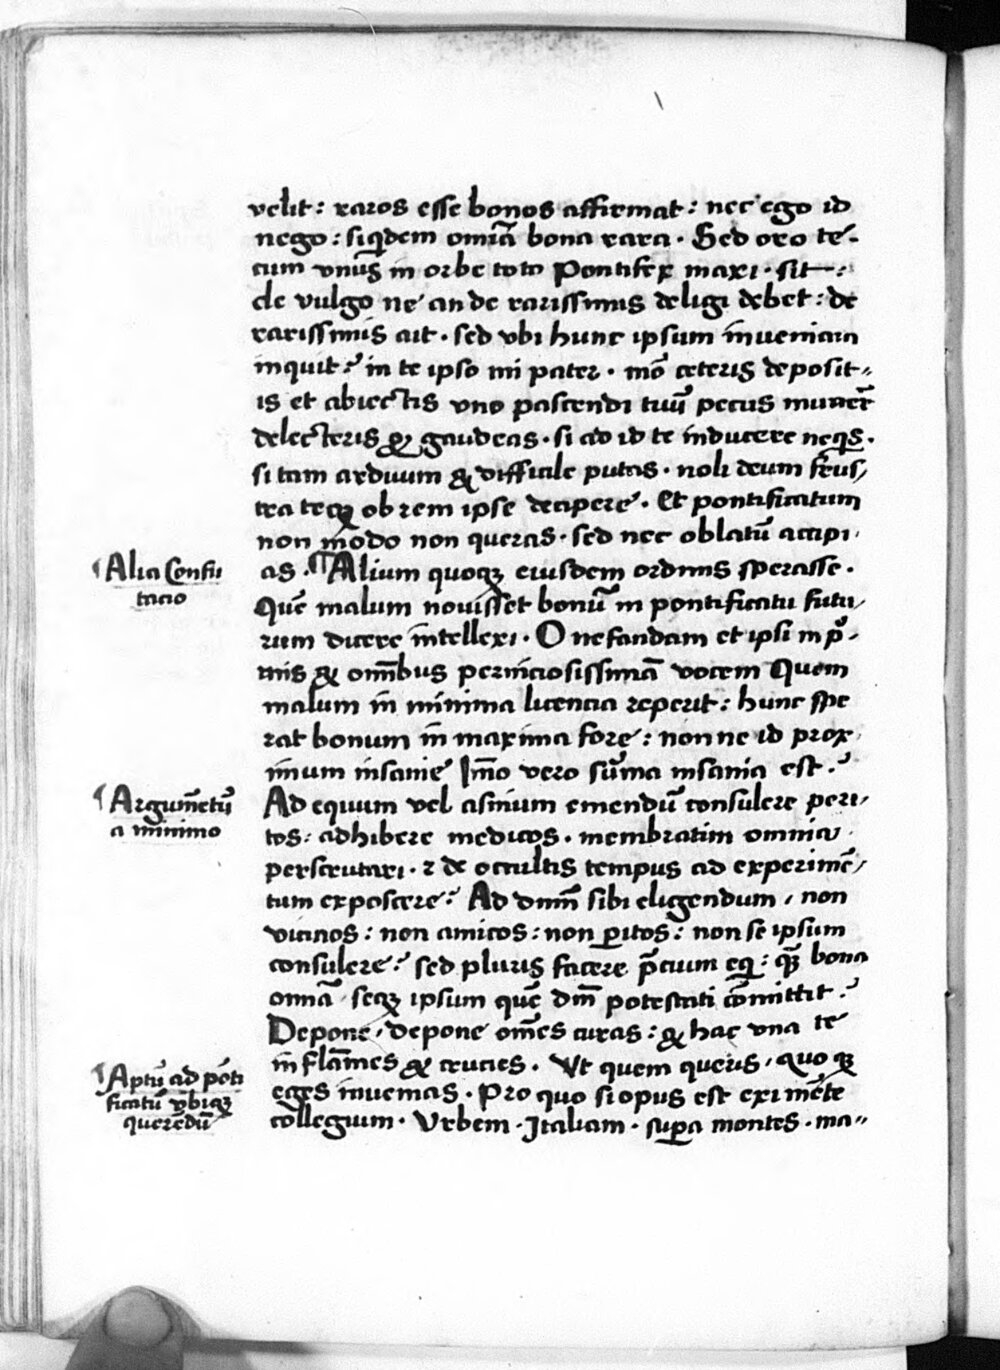 velit : raros esse bonos affirmat : nec ego id
nego : siq̄dem om̄ia bona rara · Sed oro te-
cum vnus in orbe toto Pontifex maxi · sit :
de vulgo ne an de rarissimis deligi debet : de
rarissimis ait · sed vbi hunc ipsum inueniam
inquit ? in te ipso mi pater · mō ceteris deposit〃
is et abiectis vno pascendi tuū pecus muner̄
delecteris & gaudeas · si ad id te inducere neq̄s ·
si tam arduum & difficile putas · noli deum frus/
tra teqʒ ob rem ipse decipere · Et pontificatum
non modo non queras · sed nec oblatū accipi ·
as · ¶ Alium quoqʒ eiusdem ordinis sperasse ·
Quē malum nouisset bonū in pontificatu futu/
rum dicere intellexi · O nefandam et ipsi in p̊ ·
mis & om̄ibus perniciosissimā vocem Quem
malum in minima licencia reperit : hunc spe
rat bonum in maxima fore : non ne id prox/
imum insanie Im̄o vero sūma insania est ·?
Ad equum vel asinum emendū consulere peri/
tos : adhibere medicos · membratim omnia ·
perscrutari · ꝛ de occultis tempus ad experimē/
tum exposcere ? Ad dn̄m sibi eligendum / non
vicinos : non amicos : non ꝑitos : non se ipsum
consulere ? sed pluris facere p̄cium eq̄ : q̄ʒ bona
omnā · seqʒ ipsum quē dn̄m potestati cōmittit ·?
Depone / depone om̄es curas : & hac vna te
inflāmes & crucies · Vt quem queris / quo qʒ
eges inuenias · Pro quo si opus est exi mēte
collegium · Vrbem · Italiam · suꝑa montes · ma〃
¶ Alia Confu
tacio
¶ Argumētū
a minimo
¶ Aptū ad pōti
ficatū vbiqʒ
querēdū